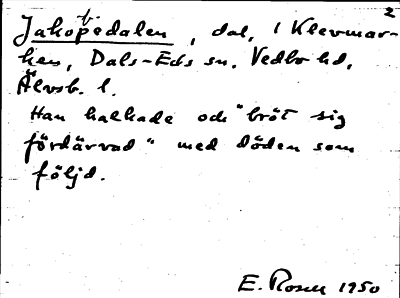 2
Jakopedalen, dal, i Klevmar-
ken, Dals-Eds sn. Vedbo hd,
Älvsb. l.
Han halkade och "bröt sig
fördärvad" med döden som
följd.
E. Rosell 1950